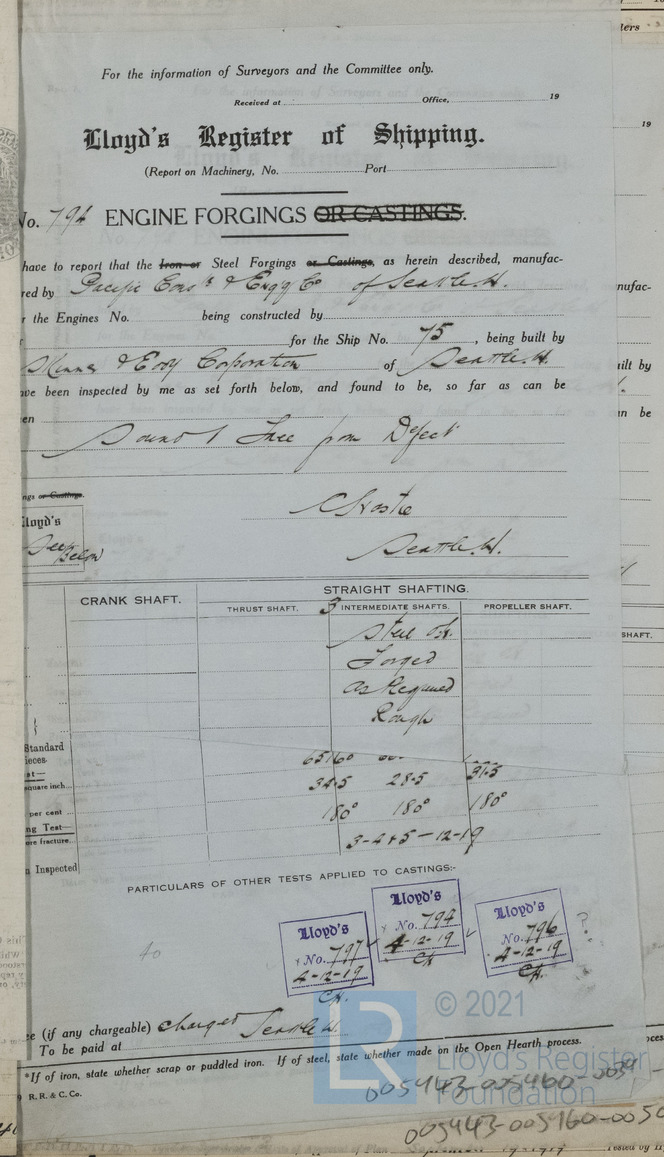 For the information of Surveyors and the Committee only.
Received at Office, 19
Lloyd's Register of Shipping.
(Report on Machinery, No. Port
No. 794 ENGINE FORGINGS OR CASTINGS.
have to report that the Iron or Steel Forgings or Castings, as herein described, manufac-
red by Pacific & Engg Co of Seattle.
the Engines No. being constructed by
for the Ship No. 75, being built by
& Eddy Corporation of Seattle.
ve been inspected by me as set forth below, and found to be, so far as can be
en
Sound & Free from Defect
ngs or Castings.
Lloyd's
See Below
Seattle.
CRANK SHAFT. STRAIGHT SHAFTING.
THRUST SHAFT. 3 INTERMEDIATE SHAFTS. PROPELLER SHAFT.
Steel O.H.
Forged
As Required
Rough
Standard
ieces
st—
square inch... 34.5 28.5 31.5
per cent 180° 180° 180°
ng Test—
re fracture. 3-4&5-12-19
Inspected
PARTICULARS OF OTHER TESTS APPLIED TO CASTINGS:-
Lloyd's
No. 797
4-12-19
CH.
Lloyd's
No. 794
4-12-19
CH
Lloyd's
No. 796
4-12-19
CH.
?
40
ee (if any chargeable) charged Seattle
To be paid at
*If of iron, state whether scrap or puddled iron. If of steel, state whether made on the Open Hearth process.
R.R. & C. Co.
LR © 2021
Lloyd's Register
Foundation
005443-005460-
005443-005460-